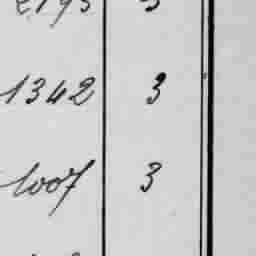 1342 3
1007 3